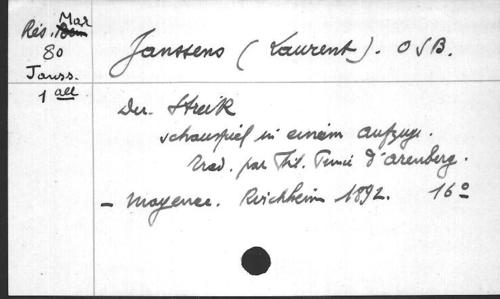 Rés. Mar
80
Janss.
1 all
Janssens (Laurent). OSB.
Der Streik
schauspiel in einem aufzuge.
Trad. par Phil. d'Arenberg.
– Mayence. Kirchheim 1892. 16°